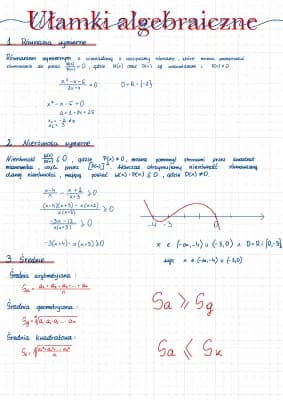 Ułamki algebraiczne
1. Równania wymierne
Równaniem wymiernym z niewiadomą x nazywamy równanie, które można przekształcić
równoważnie do postaci W(x)/P(x) = 0, gdzie W(x) oraz P(x) są wielomianami i P(x) ≠ 0.
= 0 D = R - {-2}
x² - x - 6 = 0
Δ = 1 + 24 = 25
2. Nierówności wymierne
Nierówność W(x)/P(x) ≤ 0, gdzie P(x) ≠ 0, można pomnożyć stronami przez kwadrat
mianownika, czyli przez [P(x)]². Wówczas otrzymujemy nierówność równoważną
danej nierówności, mającą postać W(x) · P(x) ≤ 0, gdzie P(x) ≠ 0.
(x-4)/x - (x+2)/(x+3) ≥ 0
((x-4)(x+3) - x(x+2))/(x(x+3)) ≥ 0
(-3x-12)/(x(x+3)) ≥ 0
-4 -3 0
-3(x+4) · x(x+3) ≥ 0
x ∈ (-∞,-4) ∪ (-3,0) ∧ D = R - {0,-3}
więc x ∈ (-∞,-4) ∪ (-3,0)
3. Średnie
Średnia arytmetyczna:
Sa ≥ Sg
Średnia geometryczna:
Średnia kwadratowa:
Sa ≤ Sk